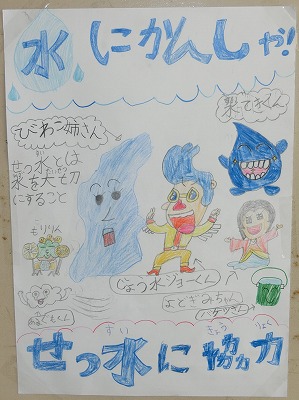 水にかんしゃ!
びわこ姉さん
せっ水とは
水を大切
にすること
もりりん
じょう水ジョーくん
よどぎみちゃん
バケツさん
すい きょう りょく
せっ水に協力